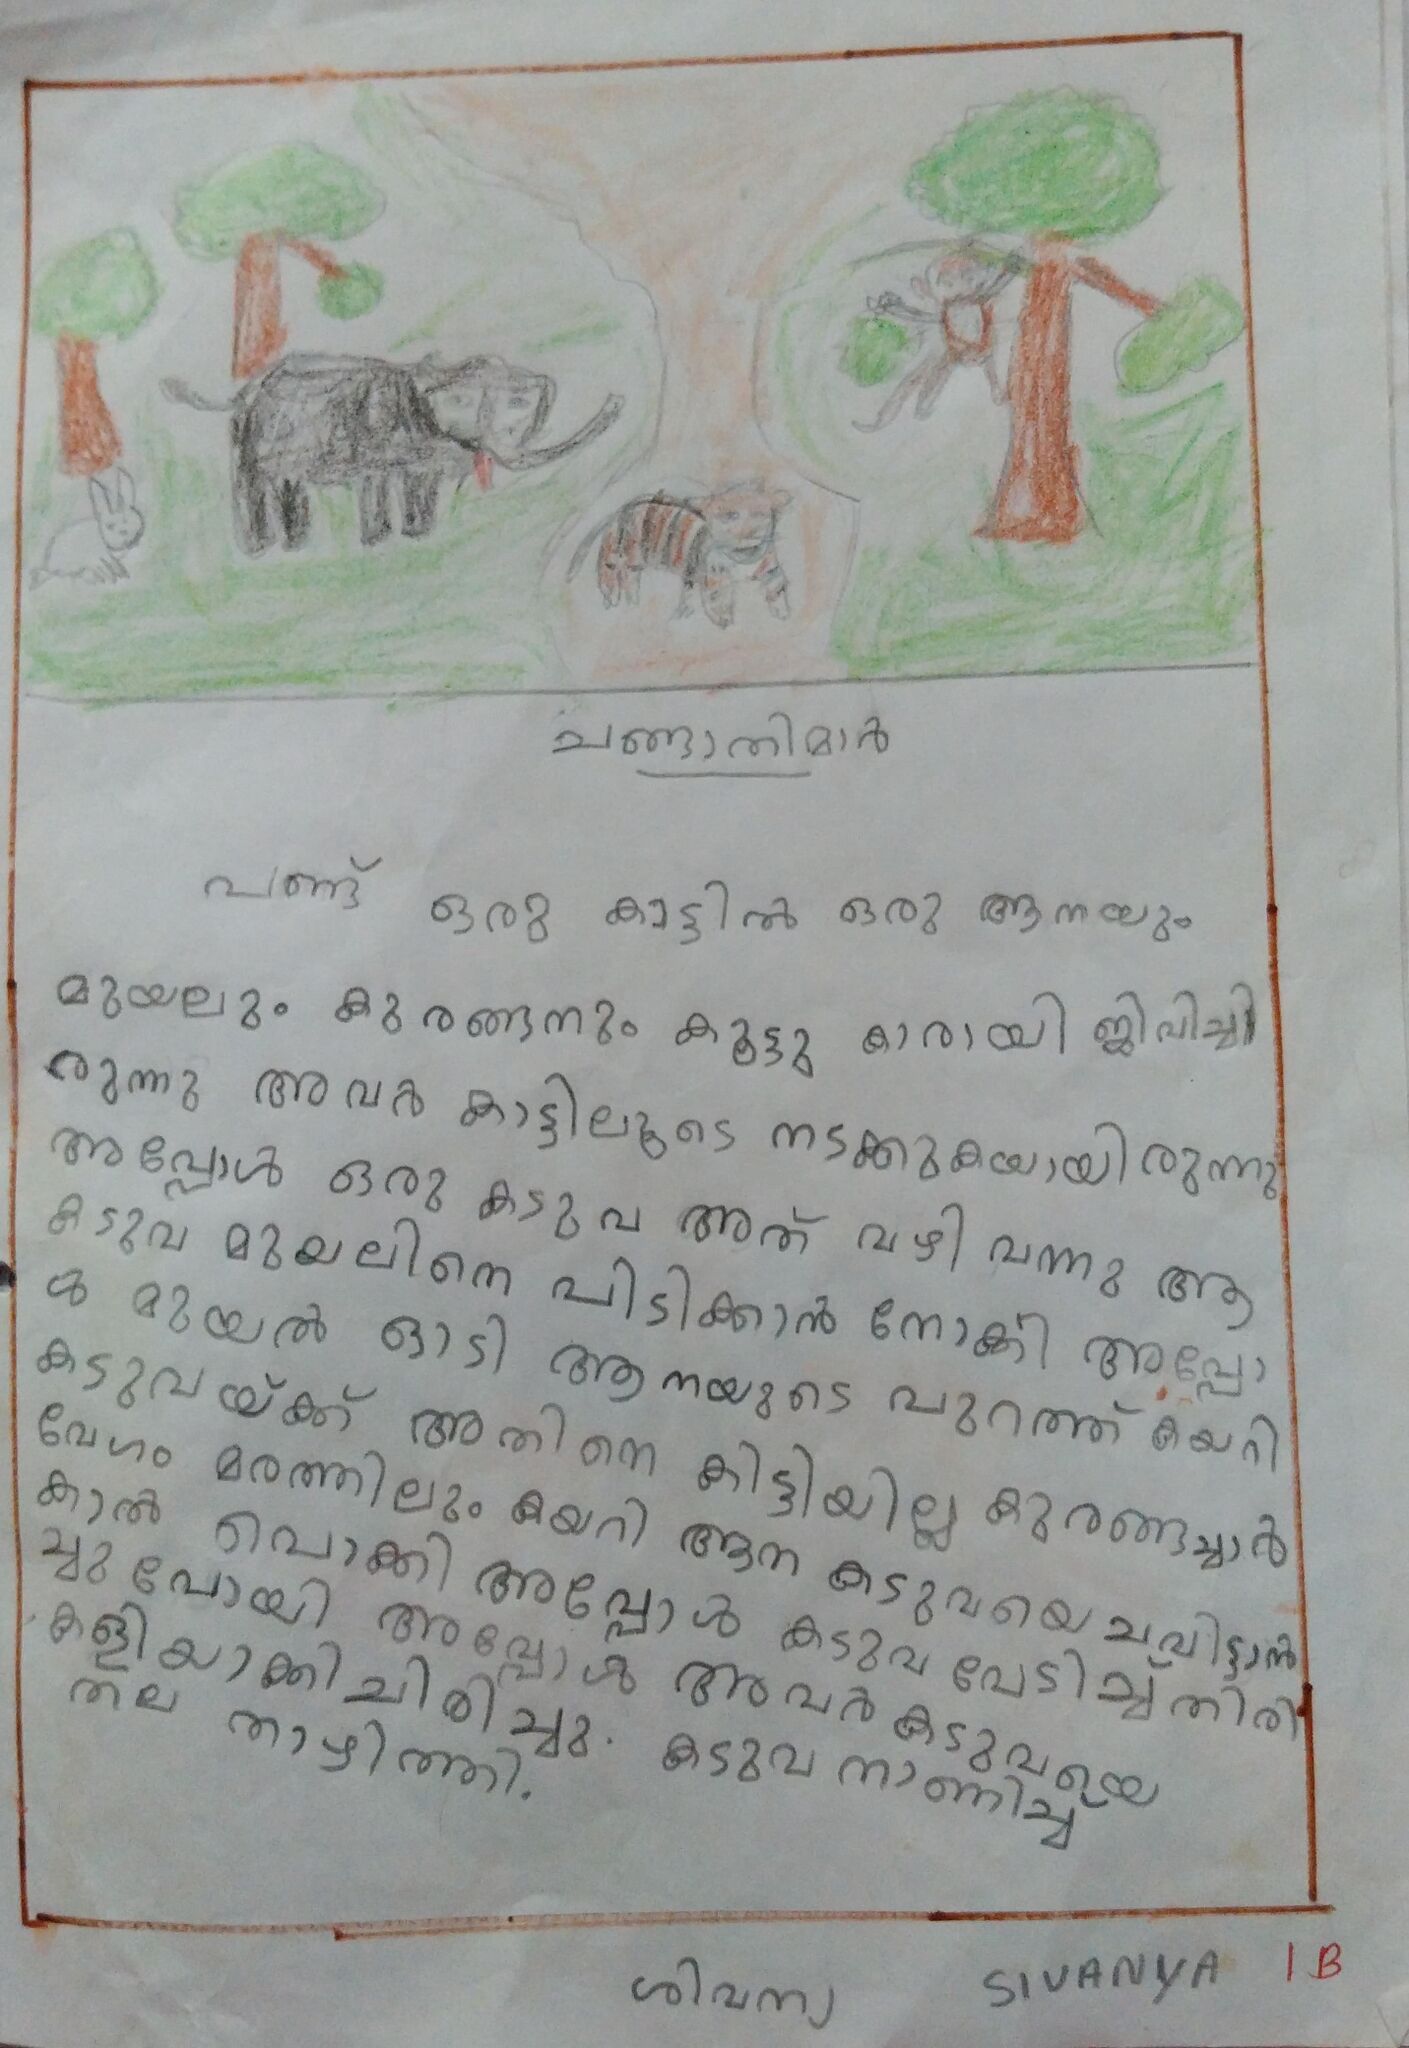 ചങ്ങാതിമാർ
പണ്ട് ഒരു കാട്ടിൽ ഒരു ആനയും
മുയലും കുരങ്ങനും കൂട്ടു കാരായി ജീവിച്ചി
രുന്നു അവർ കാട്ടിലൂടെ നടക്കുകയായിരുന്നു
അപ്പോൾ ഒരു കടുവ അത് വഴി വന്നു ആ
കടുവ മുയലിനെ പിടിക്കാൻ നോക്കി അപ്പോ
ൾ മുയൽ ഓടി ആനയുടെ പുറത്ത് കയറി
കടുവയ്ക്ക് അതിനെ കിട്ടിയില്ല കുരങ്ങച്ചാർ
വേഗം മരത്തിലും കയറി ആന കടുവയെ ചവിട്ടാൻ
കാൽ പൊക്കി അപ്പോൾ കടുവ പേടിച്ച് തിരി
ച്ചു പോയി അപ്പോൾ അവർ കടുവയെ
കളിയാക്കി ചിരിച്ചു. കടുവ നാണിച്ച്
തല താഴ്ത്തി.
ശിവന്യ SIVANYA 1 B